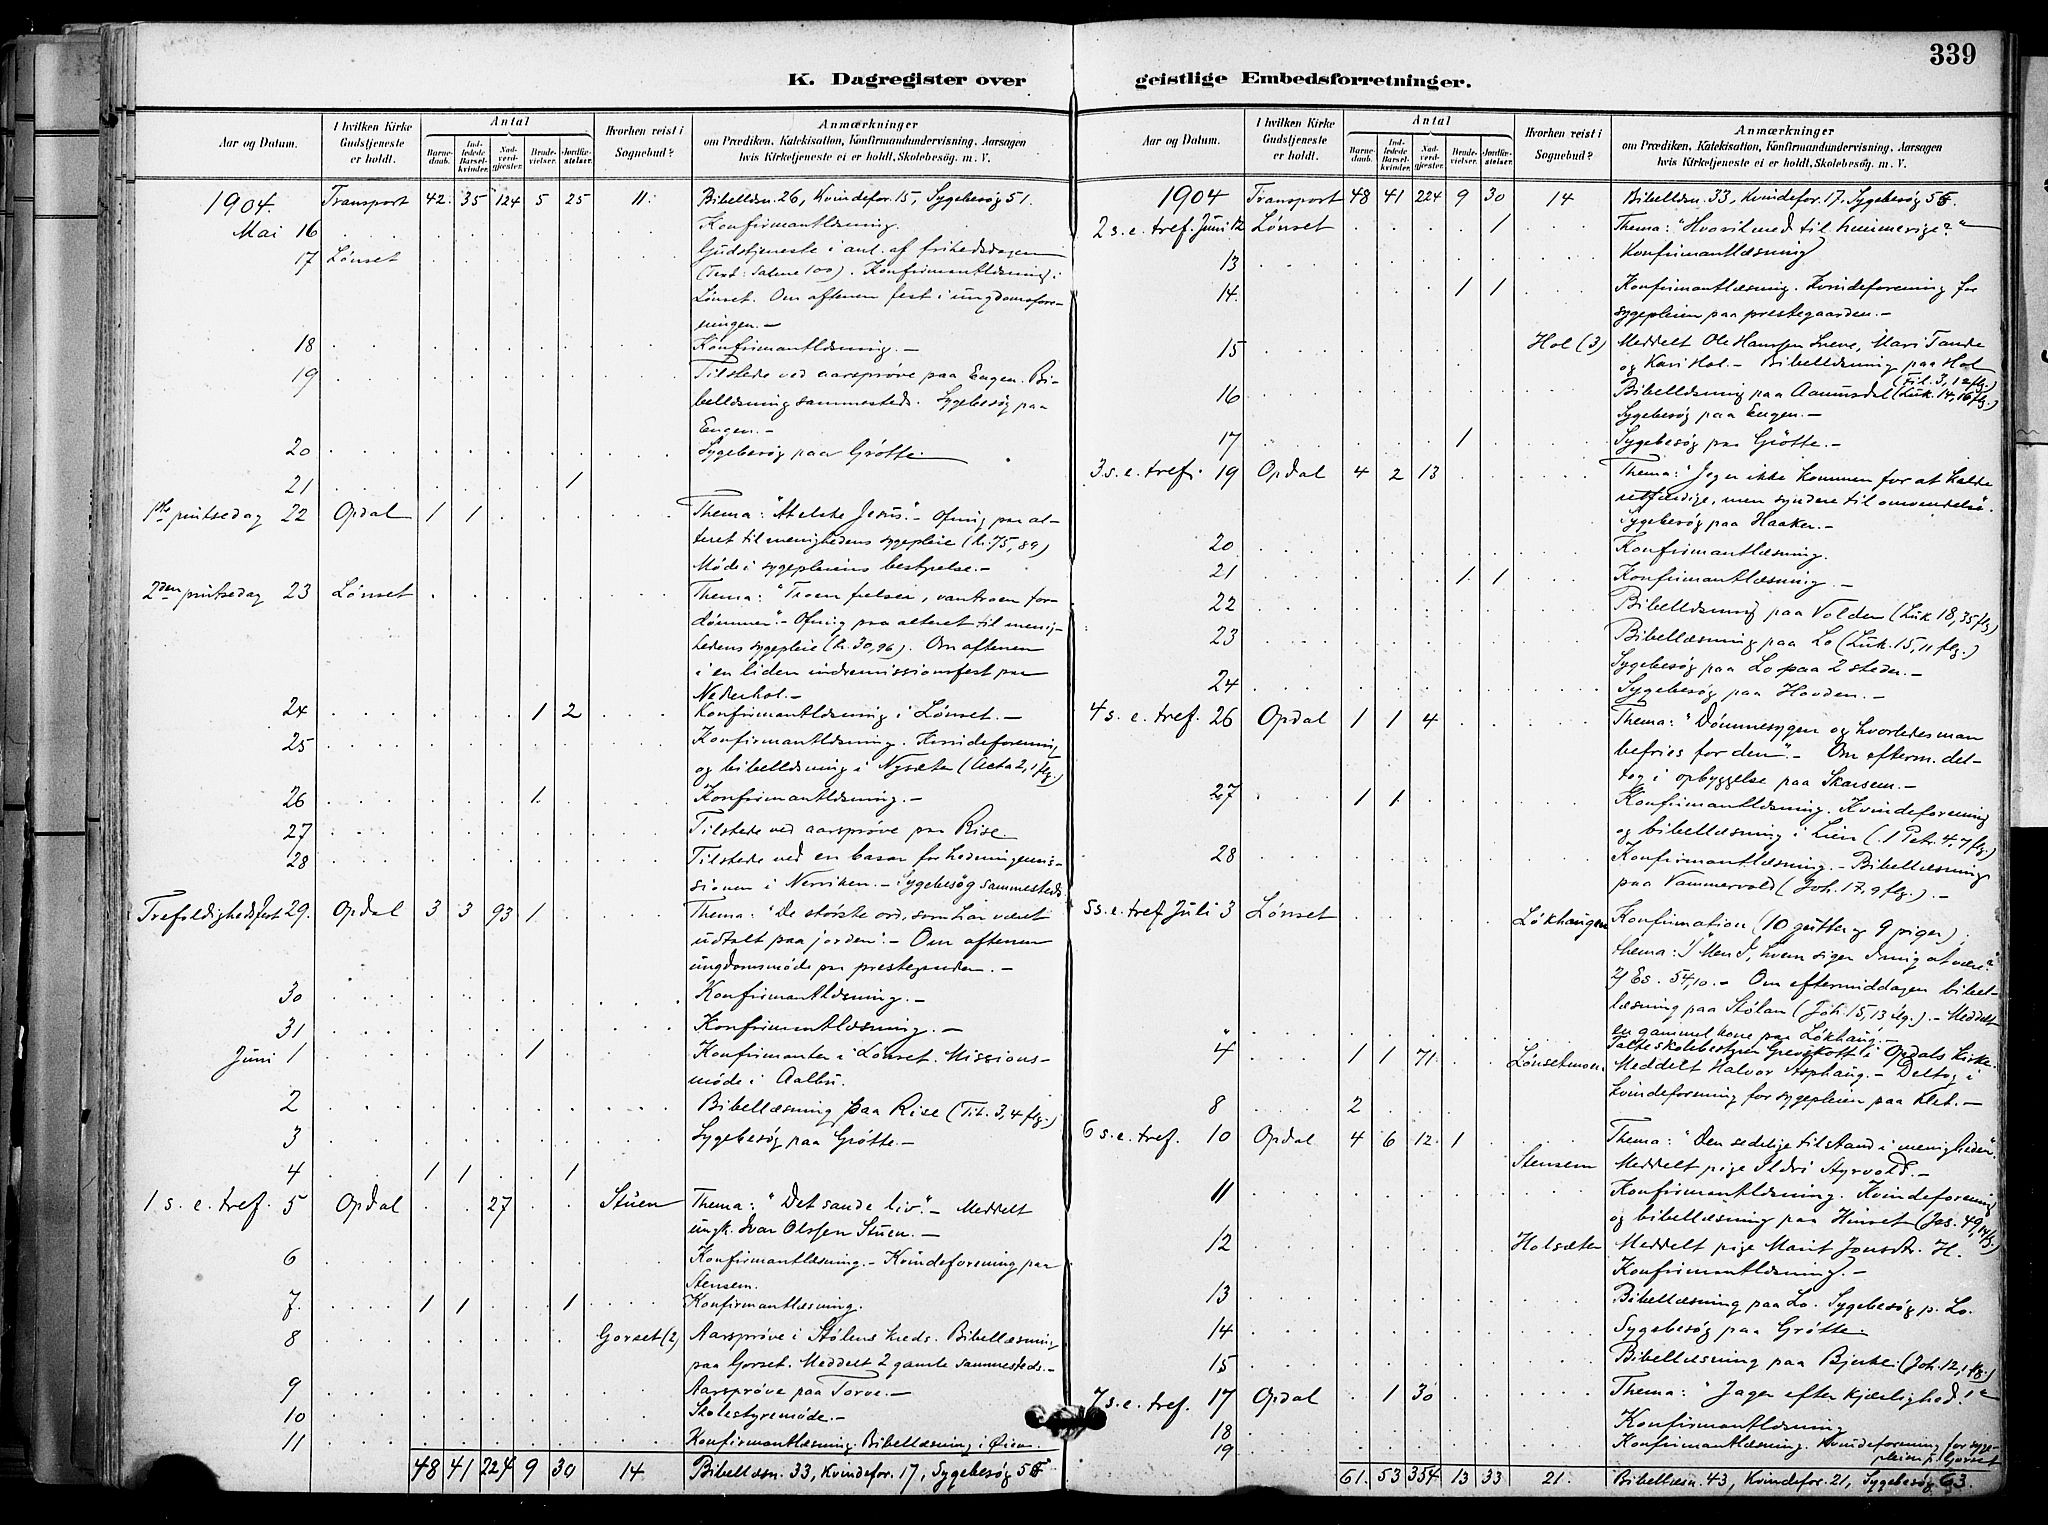 339
K. Dagregister over geistlige Embedsforretninger.
Aar og Datum. I hvilken Kirke Gudstjeneste er holdt. Antal Barnedaab. Indledede Barselkvinder. Nadverdgjester. Brudevielser. Jordfæstelser. Hvorhen reist i Sognebud? Anmærkninger om Prædiken, Katekisation, Konfirmandundervisning, Aarsagen hvis Kirketjeneste ei er holdt, Skolebesøg. m. V.
1904. Transport 42. 35 124 5 25 11. Bibellæsn. 26, Kvindefor. 15, Sygebesøg 51.
Mai 16 Konfirmantlæsning.
17 Lønset Gudstjeneste i anl. af frihedsdagen
(Text: Salme 100). Konfirmantlæsning i
Lønset. Om aftenen fest i ungdomsfore-
ningen.-
18 Konfirmantlæsning.-
19 Tilstede ved aarsprøve paa Engen. Bi-
bellæsning sammesteds. Sygebesøg paa
Engen.-
20 Sygebesøg paa Grøtte.
21 1
1ste pintsedag 22 Opdal 1 1 Thema: "At elske Jesus".- Ofring paa al-
teret til menighedens sygepleie (kr. 75,89)
Møde i sygepleiens bestyrelse.-
2den pintsedag 23 Lønset Thema: "Troen frelser, vantroen for-
dømmer".- Ofring paa alteret til menig-
hedens sygepleie (kr. 30,96). Om aftenen
i en liden indremissionsfest paa
Nederhol.-
24 1 2 Konfirmantlæsning i Lønset.-
25 Konfirmantlæsning. Kvindeforening
og bibellæsning i Nysæter (Acta 2, 1 flg.)
26 1. Konfirmantlæsning.-
27 Tilstede ved aarsprøve paa Rise.
28 Tilstede ved en basar for hedningemis-
sionen i Nerviken.- Sygebesøg sammesteds.
Trefoldighedsfest 29. Opdal 3 3 93 1. Thema: "De største ord, som har været
udtalt paa jorden".- Om aftenen
ungdomsmøde paa prestegaarden.-
30 Konfirmantlæsning.-
31 Konfirmantlæsning.-
Juni 1 1 Konfirmanter i Lønset. Missions-
møde i Aalbu.
2 Bibellæsning paa Rise (Tit. 3, 4 flg.)
3 Sygebesøg paa Grøtte.-
4 1 1 1
1 s. e. tref. 5 Opdal 27 Stuen Thema: "Det sande liv".- Meddelt
ungk. Ivar Olssen Stuen.-
6 Konfirmantlæsning.- Kvindeforening paa
Stensem.
7. 1 1 1 Konfirmantlæsning.
8 Gorset (2) Aarsprøve i Stølens kreds. Bibellæsning
paa Gorset. Meddelt 2 gamle sammesteds.-
9 Aarsprøve paa Torve.-
10 Skolestyremøde.-
11 Konfirmantlæsning. Bibellæsning i Øien.
48 41 224 9 30 14. Bibellæsn. 33, Kvindefor. 17, Sygebesøg 55
Aar og Datum. I hvilken Kirke Gudstjeneste er holdt. Antal Barnedaab. Indledede Barselkvinder. Nadverdgjester. Brudevielser. Jordfæstelser. Hvorhen reist i Sognebud? Anmærkninger om Prædiken, Katekisation, Konfirmandundervisning, Aarsagen hvis Kirketjeneste ei er holdt, Skolebesøg. m. V.
1904 Transport 48 41 224 9 30 14 Bibellæsn. 33, Kvindefor. 17, Sygebesøg 55.
2 s. e. tref. Juni 12 Lønset 1 Thema: "Hvoril med til himmerige?"
13 Konfirmantlæsning
14. 1 1 Konfirmantlæsning. Kvindeforening for
sygepleien paa prestegaarden.-
15 Hol (3) Meddelt Ole Hanssen Sneve, Mari Tande
og Kari Hol.- Bibellæsning paa Hol
(Fil. 3, 12 flg.)
16 Bibellæsning paa Aamusdal (Luk. 14, 16 flg.)
Sygebesøg paa Engen.-
17 1 Sygebesøg paa Grøtte.-
3 s. e. tref. 19 Opdal 4 2 13 Thema: "Jeg er ikke kommen for at kalde
retfærdige, men syndere til omvendelse".
Sygebesøg paa Haaker.-
20 Konfirmantlæsning.
21 1. 1 Konfirmantlæsning.-
22 Bibellæsning paa Volden (Luk. 18, 35 flg)
23 Bibellæsning paa Lo (Luk. 15, 11 flg.)
Sygebesøg paa Lo paa 2 steder.-
24 Sygebesøg paa Hovden.-
4 s. e. tref. 26 Opdal 1 1 4 Thema: "Dømmesygen og hvorledes man
befries for den".- Om efterm. del-
tog i opbyggelse paa Skarsem.-
27 1 1. Konfirmantlæsning. Kvindeforening
og bibellæsning i Lien (1 Petr. 4, 7 flg.)
28 Konfirmantlæsning.- Bibellæsning
paa Vammervold (Joh. 17, 9 flg.).-
5 s. e. tref Juli 3 Lønset Løkhaugen Konfirmation (10 gutter og 9 piger);
thema: 1/ "Men I, hvem siger I mig at være?"
2/ Es. 54,10.- Om eftermiddagen bibel-
læsning paa Stølan (Joh. 15, 13 flg.).- Meddelt
en gammel kone paa Løkhaug.-
" Talte skolebestyrer Grevskott i Opdals kirke.
4 1 1 71. Lønsetmoen Meddelt Halvor Asphaug.- Deltog i
kvindeforening for sygepleien paa Klet.-
8 2
6 s. e. tref. 10 Opdal 4 6 12. 1 Thema: "Den sedelige tilstand i menigheden".
Stensem Meddelt pige Ildri Ayrvold.-
11 Konfirmantlæsning. Kvindeforening
og bibellæsning paa Hinset (Jes. 49, 14 flg.)
12 Holsæter Meddelt pige Marit Jonsdtr. H.
Konfirmantlæsning.-
13 Bibellæsning paa Lo. Sygebesøg p. Lo.
14 Sygebesøg paa Grøtte.
15 Bibellæsning paa Bjerke (Joh. 12, 1 flg.)
7 s. e. tref. 17 Opdal 1 30 Thema: "Jager efter kjærlighed!"
18 Konfirmantlæsning
19 Konfirmantlæsning. Kvindeforening for syge-
pleien p. Gorset
61. 53 354 13 33 21. Bibellæsn. 43, Kvindefor. 21, Sygebesøg 63.